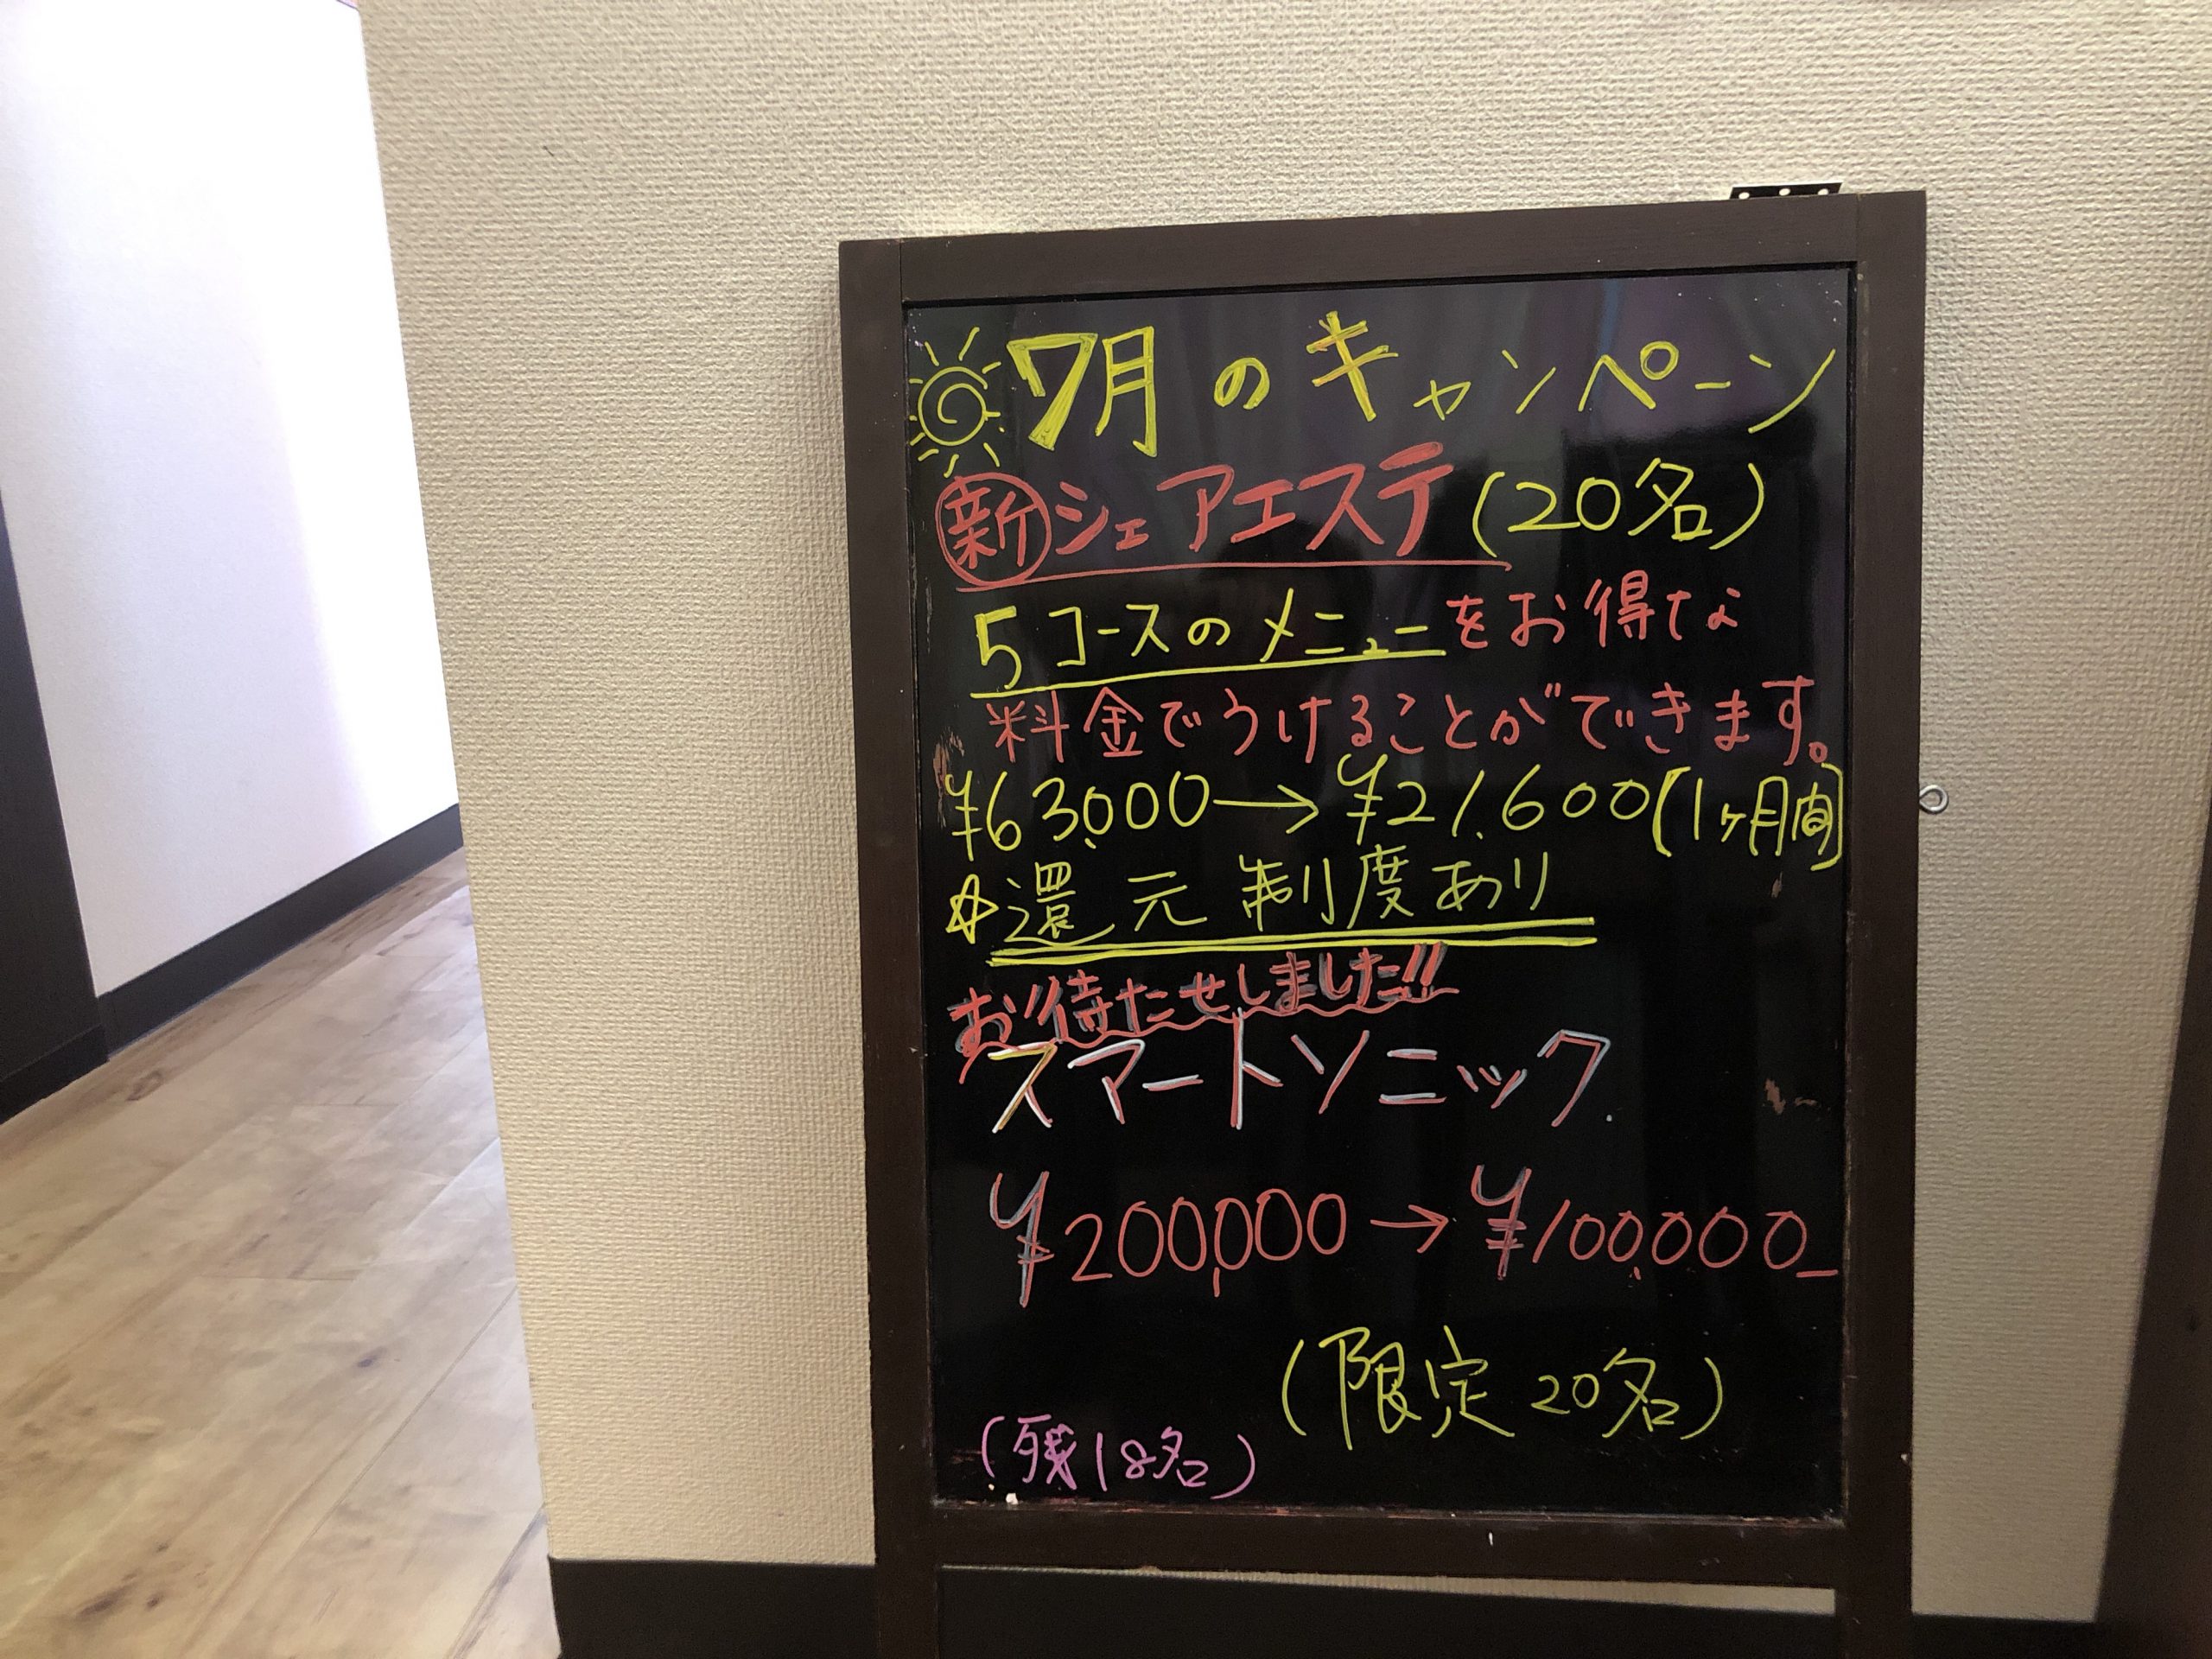 7月のキャンペーン
新シェアエステ(20名)
5コースのメニューをお得な
料金でうけることができます。
¥63,000→¥21,600(1ヶ月間)
☆還元制度あり
お待たせしました!!
スマートソニック
¥200,000→¥100,000_
(限定20名)
(残18名)